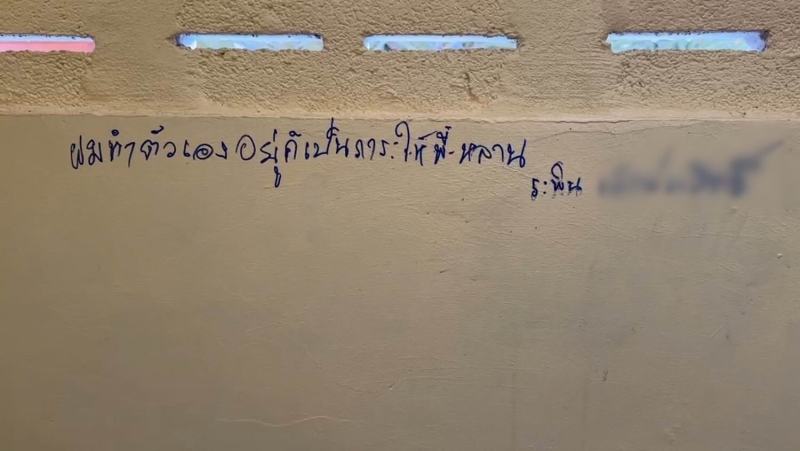 ผมทำตัวเองอยู่ก็เป็นภาระให้พี่-หลาน
ระพิน